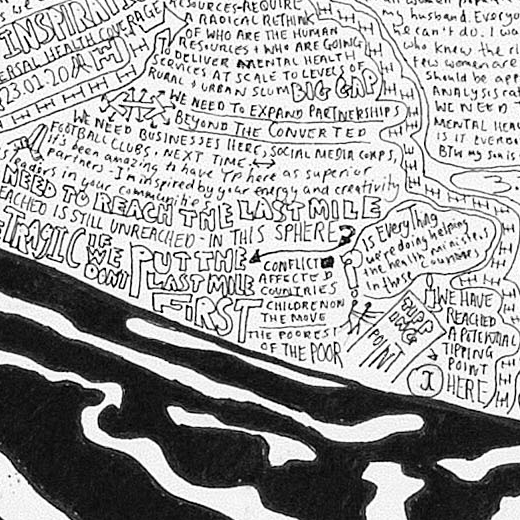 INSPIRATI
ERSAL HEALTH COVERAGE
23.01.20
RESOURCES-REQUIRE
A RADICAL RETHINK
OF WHO ARE THE HUMAN
RESOURCES + WHO ARE GOING
TO DELIVER MENTAL HEALTH
SERVICES AT SCALE TO LEVELS OF
RURAL + URBAN SLUM BIG GAP
WE NEED TO EXPAND PARTNERSHIPS
BEYOND THE CONVERTED
WE NEED BUSINESSES HERE, SOCIAL MEDIA CORPS,
FOOTBALL CLUBS, NEXT TIME
it's been amazing to have YP here as superior
partners - I'm inspired by your energy and creativity
leaders in your communities
NEED TO REACH THE LAST MILE
EACHED IS STILL UNREACHED - IN THIS SPHERE
TRAGIC IF WE DON'T
PUT THE
LAST MILE
FIRST
CONFLICT
AFFECTED
COUNTRIES
CHILDREN ON
THE MOVE
THE POOREST
OF THE POOR
is Everything
we're doing helping
the health ministers
in those countries
POINT
WE HAVE
REACHED
A POTENTIAL
TIPPING
POINT
HERE
my husband. Everyo
he can't do. I wa
who knew the ri
few women are
should be app
ANALYSIS rat
WE NEED T
MENTAL HEA
IS IT EVERBO
BTW my son is
3.